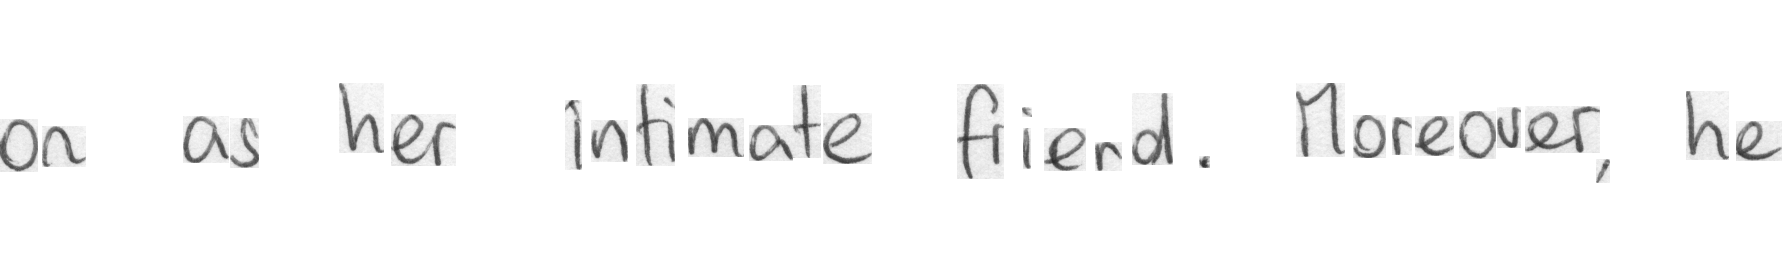 on as her intimate friend. Moreover, he